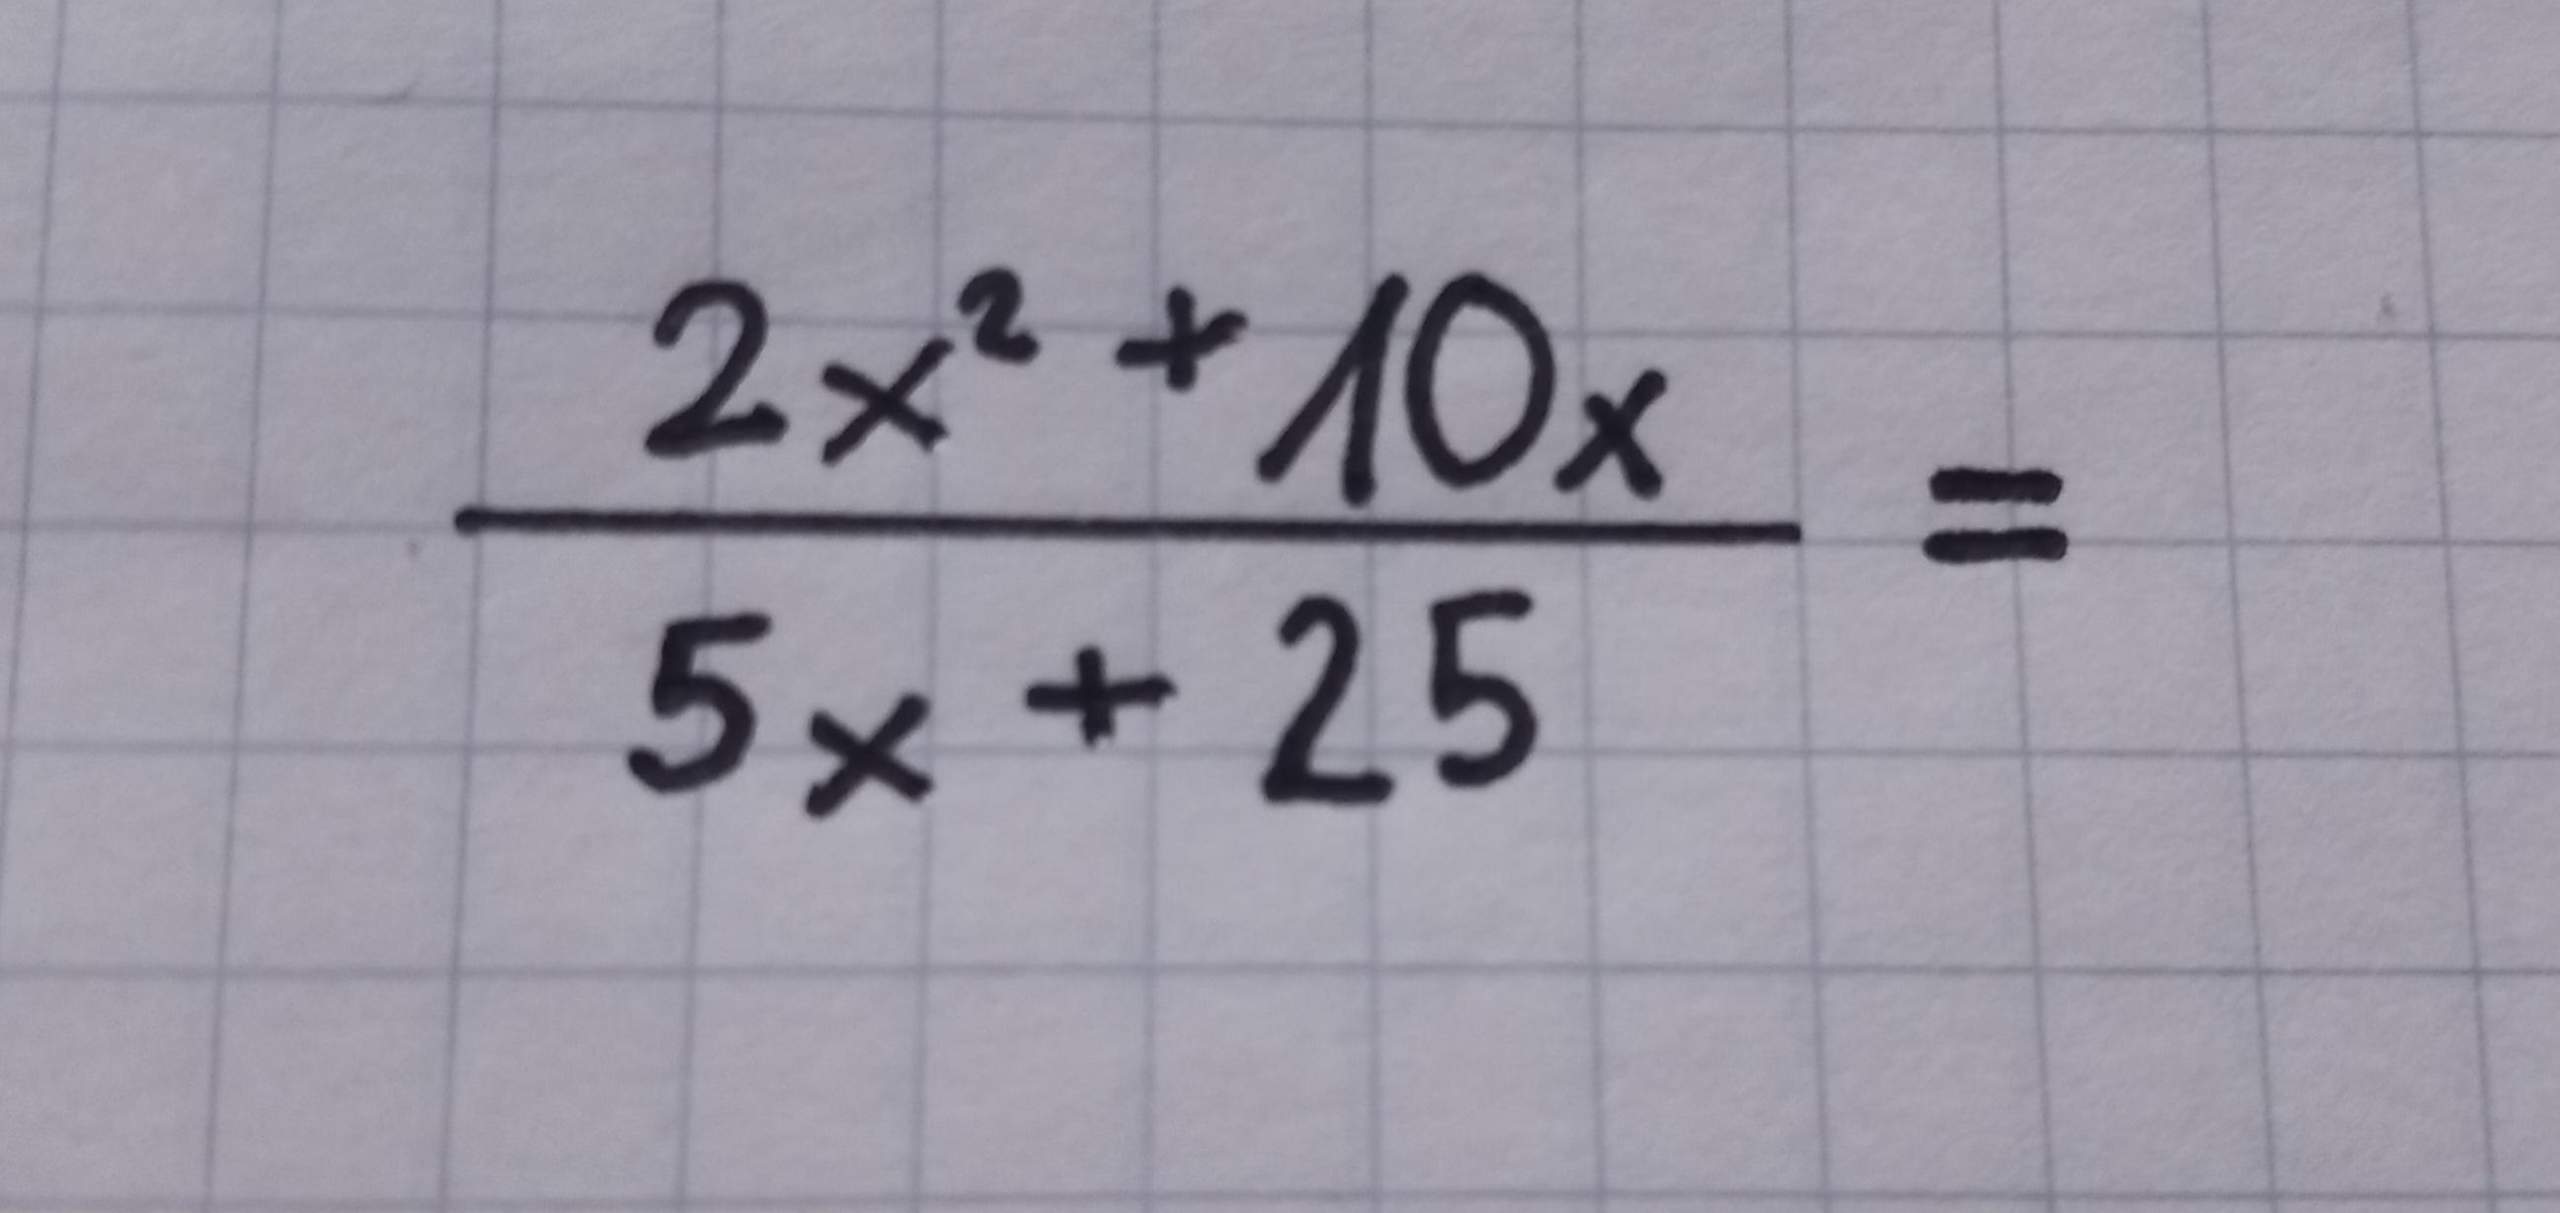 2x² + 10x =
5x + 25